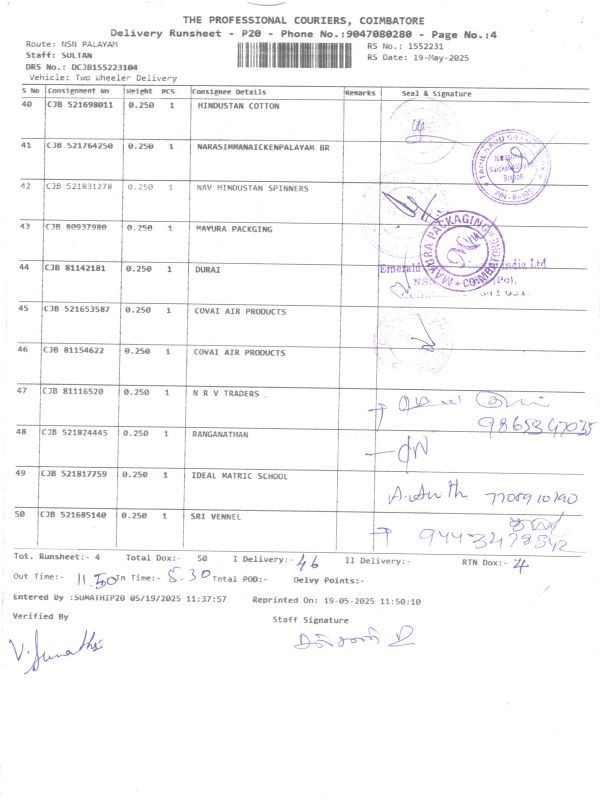 THE PROFESSIONAL COURIERS, COIMBATORE
Delivery Runsheet - P20 - Phone No.:9047080280 - Page No.:4
Route: NSN PALAYAM RS No.: 1552231
Staff: SULTAN RS Date: 19-May-2025
DRS No.: DCJB155223104
Vehicle: Two Wheeler Delivery
S No Consignment No Weight PCS Consignee Details Remarks Seal & Signature
40 CJB 521698011 0.250 1 HINDUSTAN COTTON
41 CJB 521764250 0.250 1 NARASIMMANAICKENPALAYAM BR
42 CJB 521831278 0.250 1 NAV HINDUSTAN SPINNERS
43 CJB 80937980 0.250 1 MAYURA PACKGING
MAYURA PACKAGING
COIMBATORE
44 CJB 81142181 0.250 1 DURAI
Emerald India Ltd
NSN (Po),
45 CJB 521653587 0.250 1 COVAI AIR PRODUCTS
46 CJB 81154622 0.250 1 COVAI AIR PRODUCTS
47 CJB 81116520 0.250 1 N R V TRADERS .
9865347035
48 CJB 521824445 0.250 1 RANGANATHAN
49 CJB 521817759 0.250 1 IDEAL MATRIC SCHOOL
7708910290
50 CJB 521685140 0.250 1 SRI VENNEL
9443478542
Tot. Runsheet:- 4 Total Dox:- 50 I Delivery:- 46 II Delivery:- RTN Dox:- 4
Out Time:- 11.50 In Time:- 5.30 Total POD:- Delvy Points:-
Entered By :SUMATHIP20 05/19/2025 11:37:57 Reprinted On: 19-05-2025 11:50:10
Verified By Staff Signature
V. Sumathi